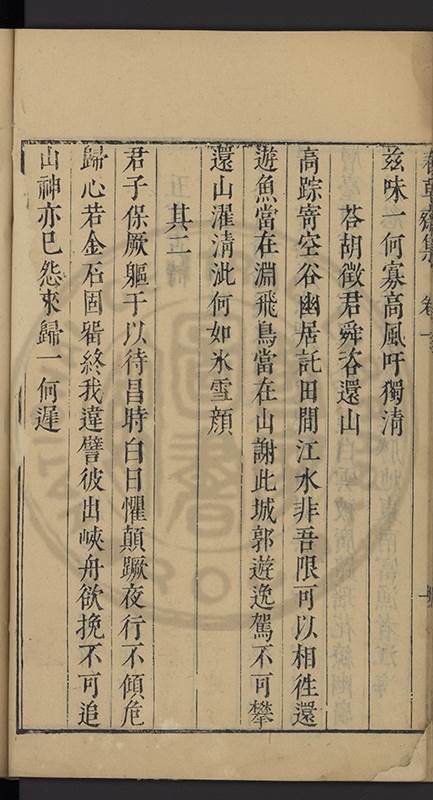 茲味一何寡高風吁獨清
荅胡徵君舜咨還山
高踪寄空谷幽居託田間江水非吾限可以相徃還
遊魚當在淵飛鳥當在山謝此城郭遊逸駕不可攀
還山濯清泚何如氷雪顔
其二
君子保厥軀于以待昌時白日懼顛蹶夜行不傾危
歸心若金石固畱終我違譬彼出峽舟欲挽不可追
山神亦已怨來歸一何遲